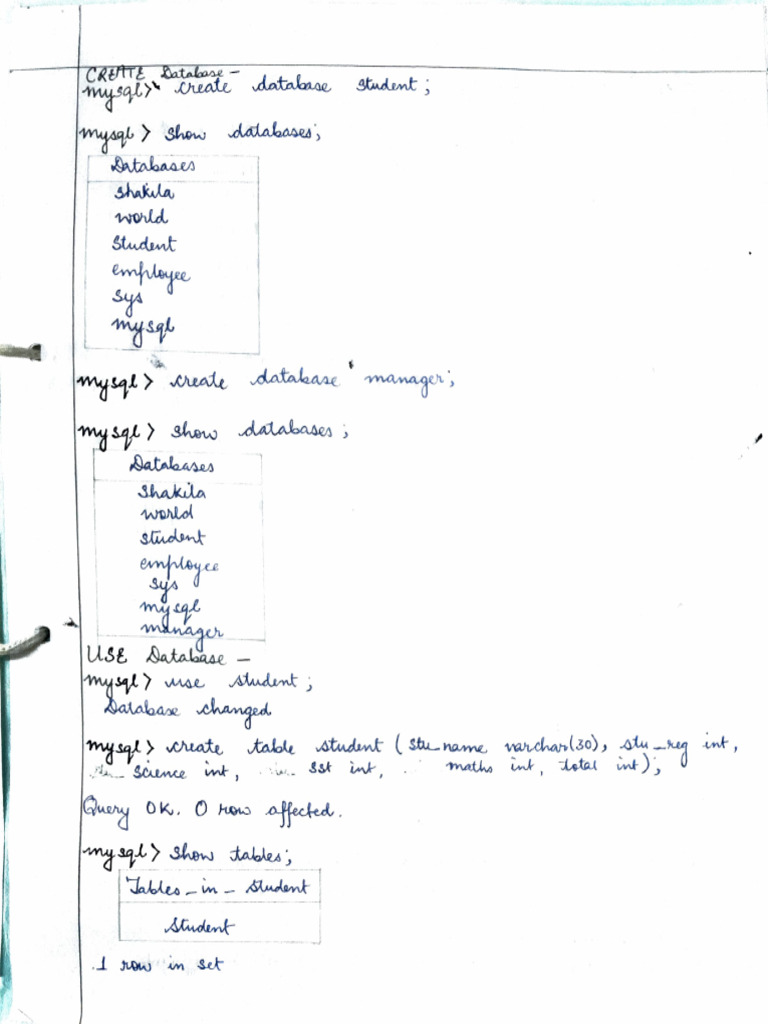 CREATE Database -
mysql> create database student;
mysql> show databases;
Databases
shakila
world
Student
employee
sys
mysql
mysql> create database manager;
mysql> show databases;
Databases
shakila
world
student
employee
sys
mysql
manager
USE Database -
mysql> use student;
Database changed
mysql> create table student (stu_name varchar(30), stu_reg int,
science int, sst int, maths int, total int);
Query OK. 0 row affected.
mysql> show tables;
Tables_in_student
student
1 row in set